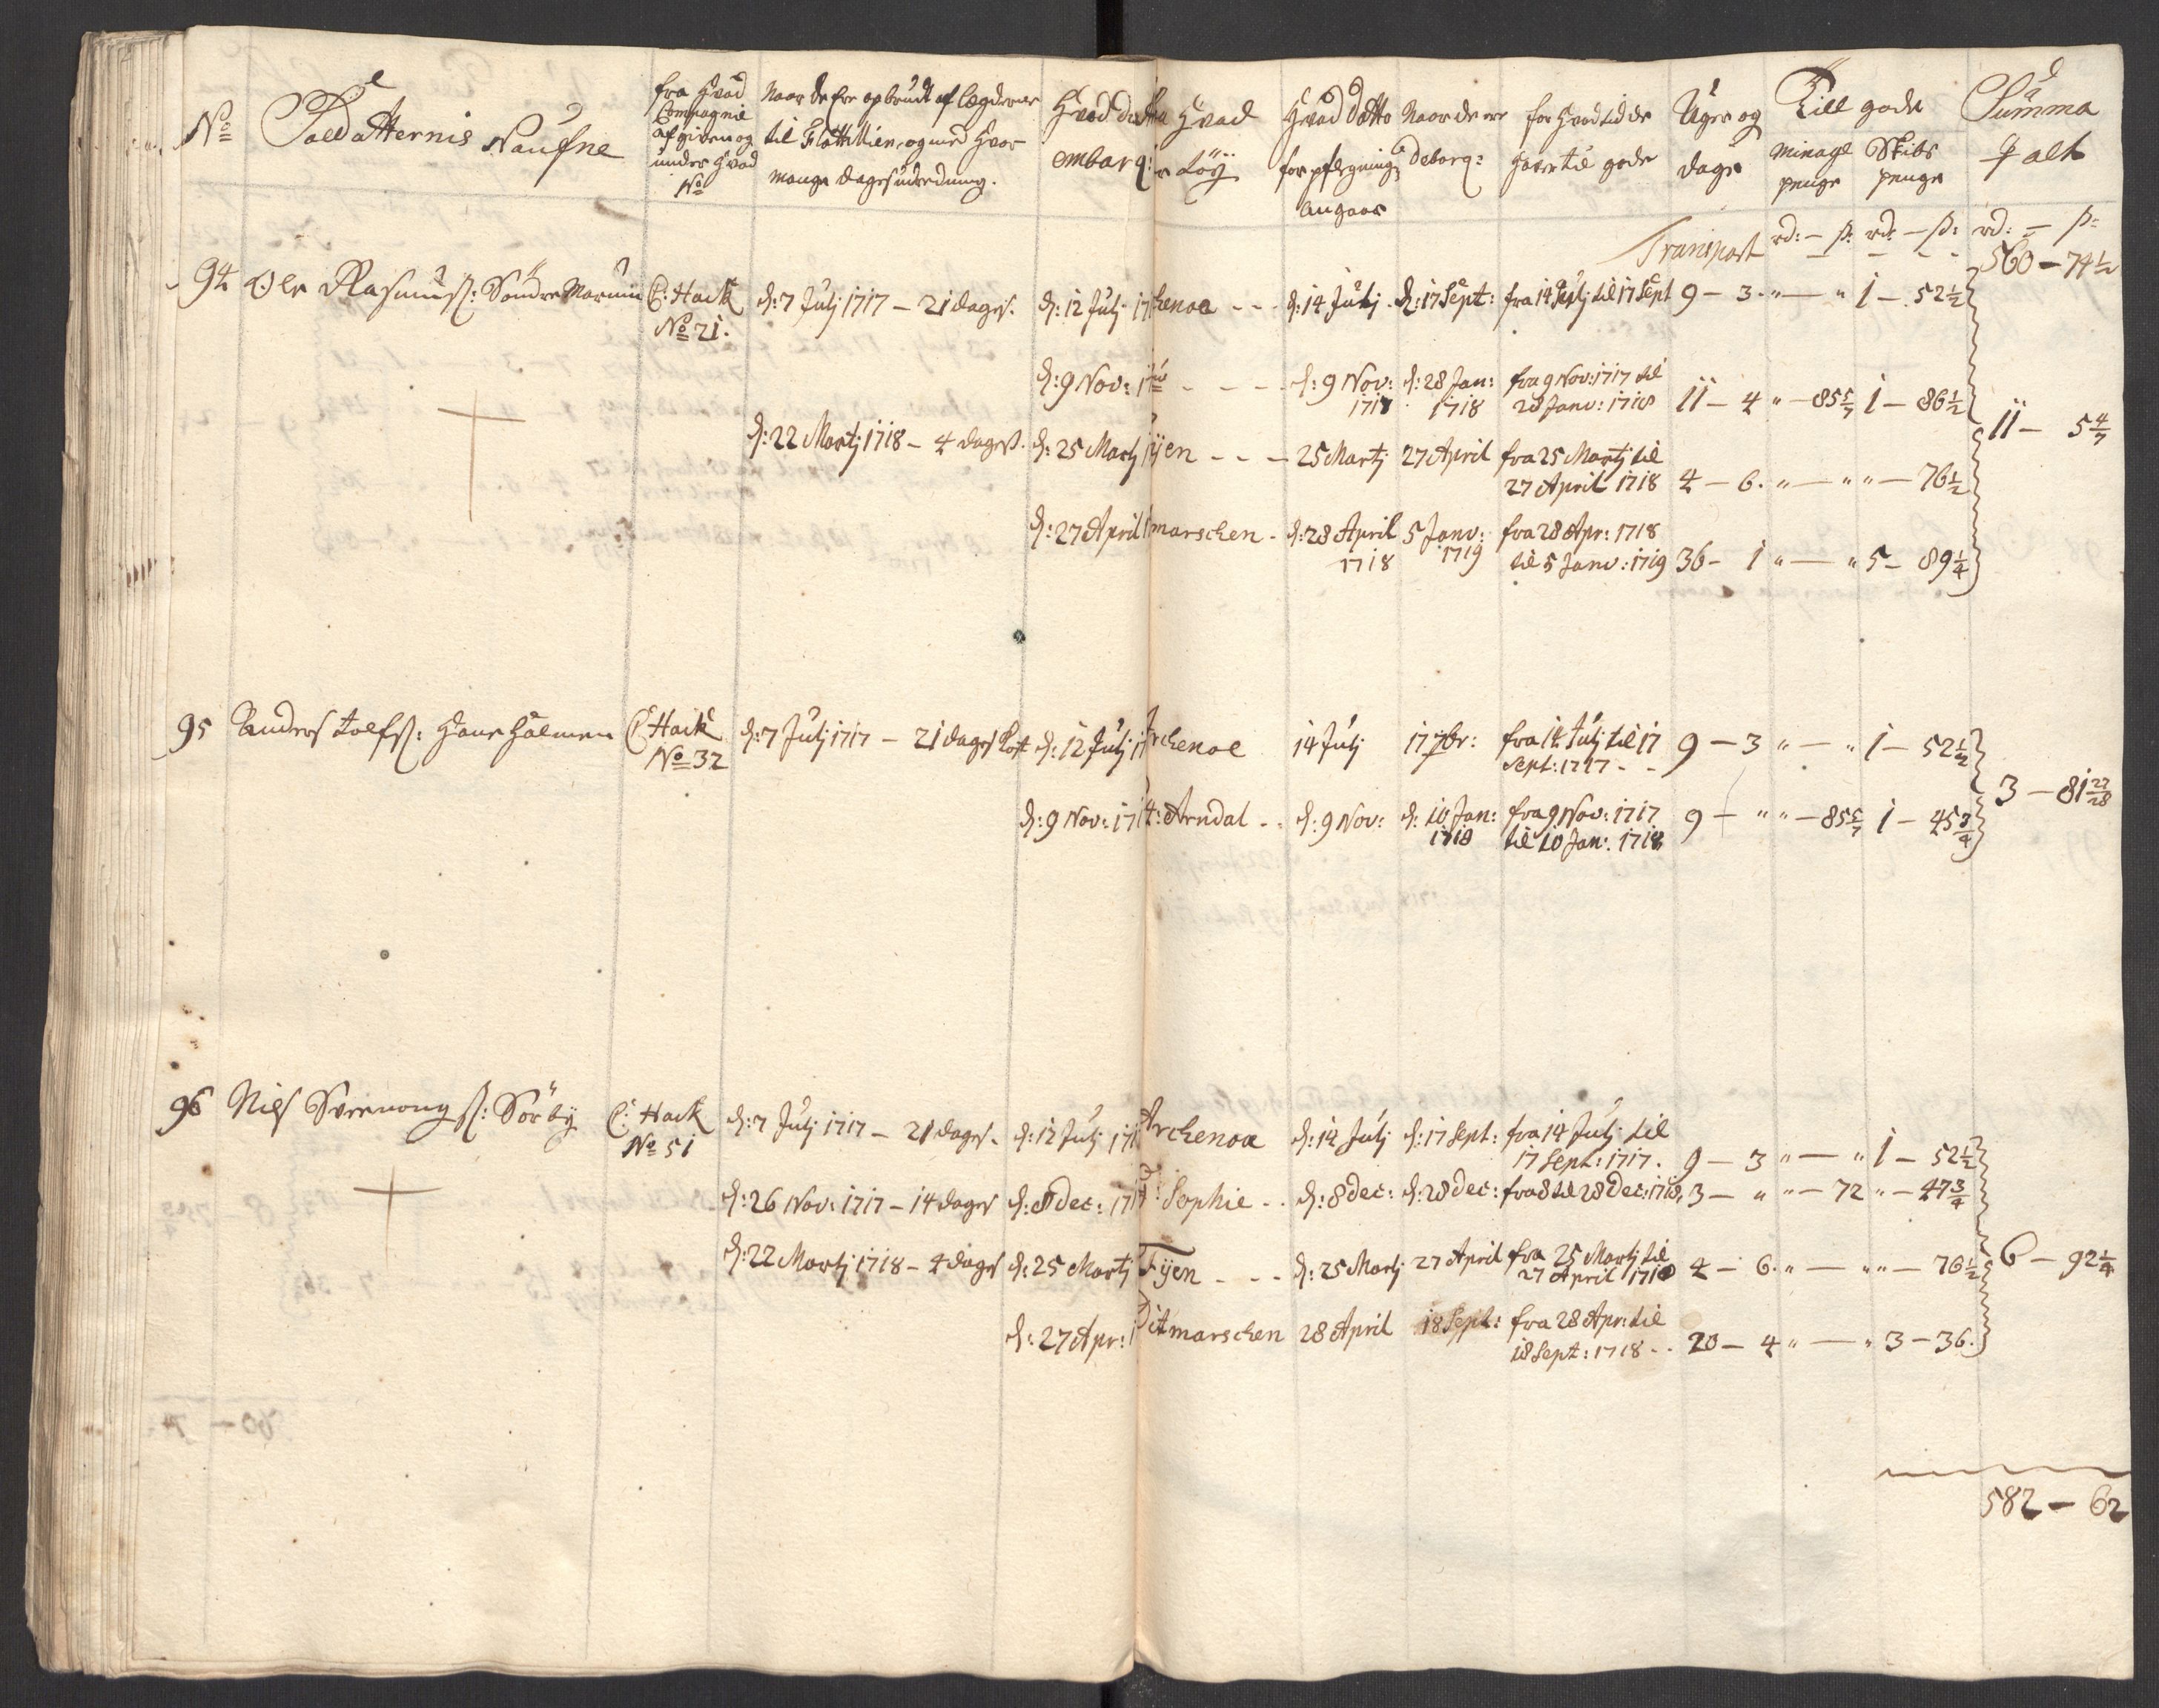 No
Soldatternis Naufne
fra Hvad
Compagnie
afgiven og
under Hvad
No
Naar de ere opbrudt af lægderne
til Flottillien, og med Hvor
mange dages Udredning.
embarq:
Hvad
Löÿ
Hvad Datto
forpflegning
angaar
Naar de ere
debarq:
for Hvad tid de
haver til gode
Uger og
dage
Till gode
Minage penge
Skibs penge
Summa
alt
Transport rd: – s: rd: – s: rd: – s:
560 – 74 1/2
94 Ole Rasmuss: Söndre
C: Hack
No 21.
d: 7 Julj 1717 – 21 dages.
d: 12 Julj 17
d: 14 Julj d: 17 Sept: fra 14 Julj til 17 Sept 9 – 3 " – " 1 – 52 1/2
d: 9 Nov: 17 d: 9 Nov: 1717 d: 28 Jan: 1718 fra 9 Nov: 1717 til
28 Janv: 1718 11 – 4 " – 85 5/7 1 – 86 1/2
11 – 5 4/7
d: 22 Martj 1718 – 4 dages. d: 25 Martj
ÿen - - - 25 Martj 27 April fra 25 Martj til
27 April 1718 4 – 6. " – " " – 76 1/2
d: 27 April
marschen - d: 28 April 1718 5 Janv: 1719 fra 28 Apr: 1718
til 5 Janv: 1719 36 – 1 " – " 5 – 89 1/4
95 Anders
C: Hack
No 32
d: 7 Julj 1717 – 21 dages Kost d: 12 Julj 17
Archenoe 14 Julj 17 7br: fra 14 Julj til 17
Sept: 1717 - - 9 – 3 " – " 1 – 52 1/2
3 – 81 27/28
d: 9 Nov: 17
Arndal - - d: 9 Nov: d: 10 Jan: 1718 fra 9 Nov: 1717
til 10 Jan: 1718 9 – " " – 85 5/7 1 – 45 3/4
96 Niels Svenning s: Sörbÿ
C: Hack
No 51
d: 7 Julj 1717 – 21 dages. d: 12 Julj 171
Archenoa d: 14 Julj d: 17 Sept: fra 14 Julj til
17 Sept: 1717. 9 – 3 " – " 1 – 52 1/2
d: 26 Nov: 1717 – 14 dages d: 8 Dec: 171
Sophie - - d: 8 Dec: d: 28 Dec: fra 8 til 28 Dec: 1718, 3 – " " – 72 " – 47 3/4
d: 22 Martj 1718 – 4 dages d: 25 Martj
Fÿen - - - d: 25 Martj 27 April fra 25 Martj til
27 April 1718 4 – 6. " – " " – 76 1/2
6 – 92 1/4
d: 27 Apr: 1
Ditmarschen 28 April 18 Sept: fra 28 Apr: til
18 Sept: 1718 - - 20 – 4 " – " 3 – 36.
582 – 62